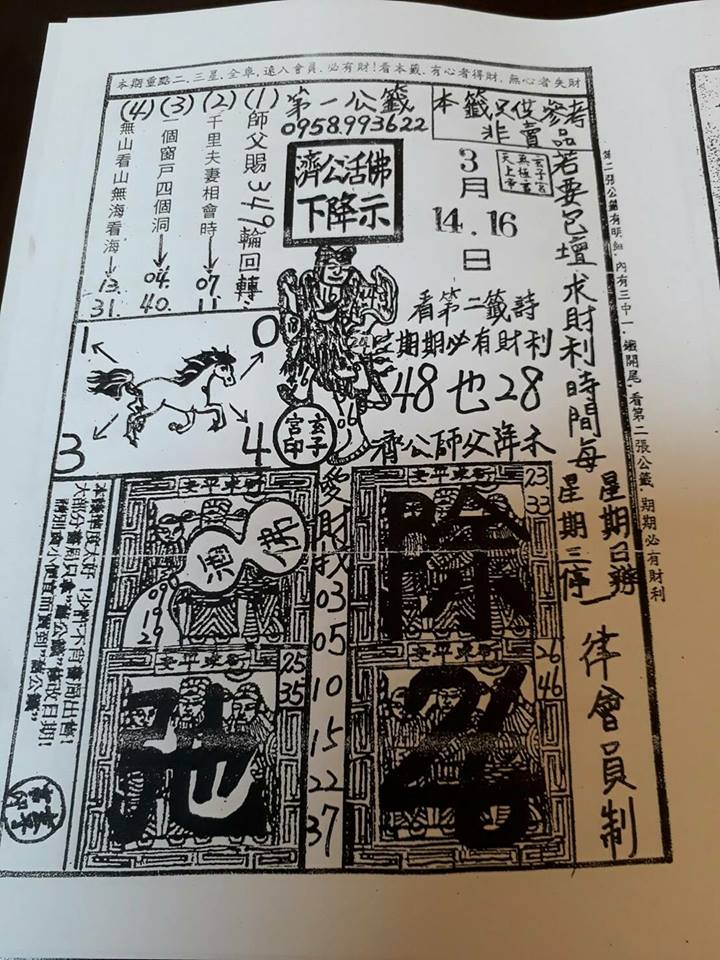 本期重點二、三星,全車,遠入會員,必有財!看本籤,有心者得財,無心者失財
本籤只供參考
非賣品
第一公籤
0958.993622
濟公活佛
下降示
玄子宮
無極宮
天上帝
3月
14.16
日
若要包壇求財利時間每
星期日辦
星期三停
一律會員制
看第二籤詩
期期必有財利
48也28
濟公師父降示
(1)師父賜349輪回轉
(2)千里夫妻相會時→07
11
(3)一個窗戶四個洞→04.
40.
(4)無山看山無海看海→13.
31.
1
0
3
4
玄子
宮印
06
發財找
03
05
10
15
22
37
新東平安
酒
佛
09
19
29
新東平安
23
33
除
新東平安
25
35
新東平安
26
46
第二張公籤有明細,內有三中一,鐵開尾,看第二張公籤,期期必有財利